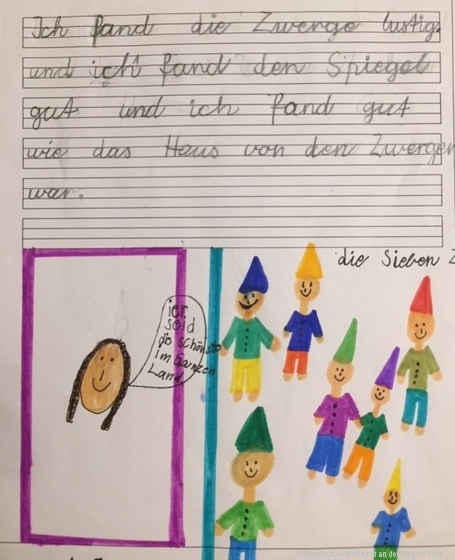 Ich fand die Zwerge lustig.
und ich fand den Spiegel
gut und ich fand gut
wie das Haus von den Zwergen
war.
die Sieben Z
ier
seid
die schönste
im Ganzen
Land